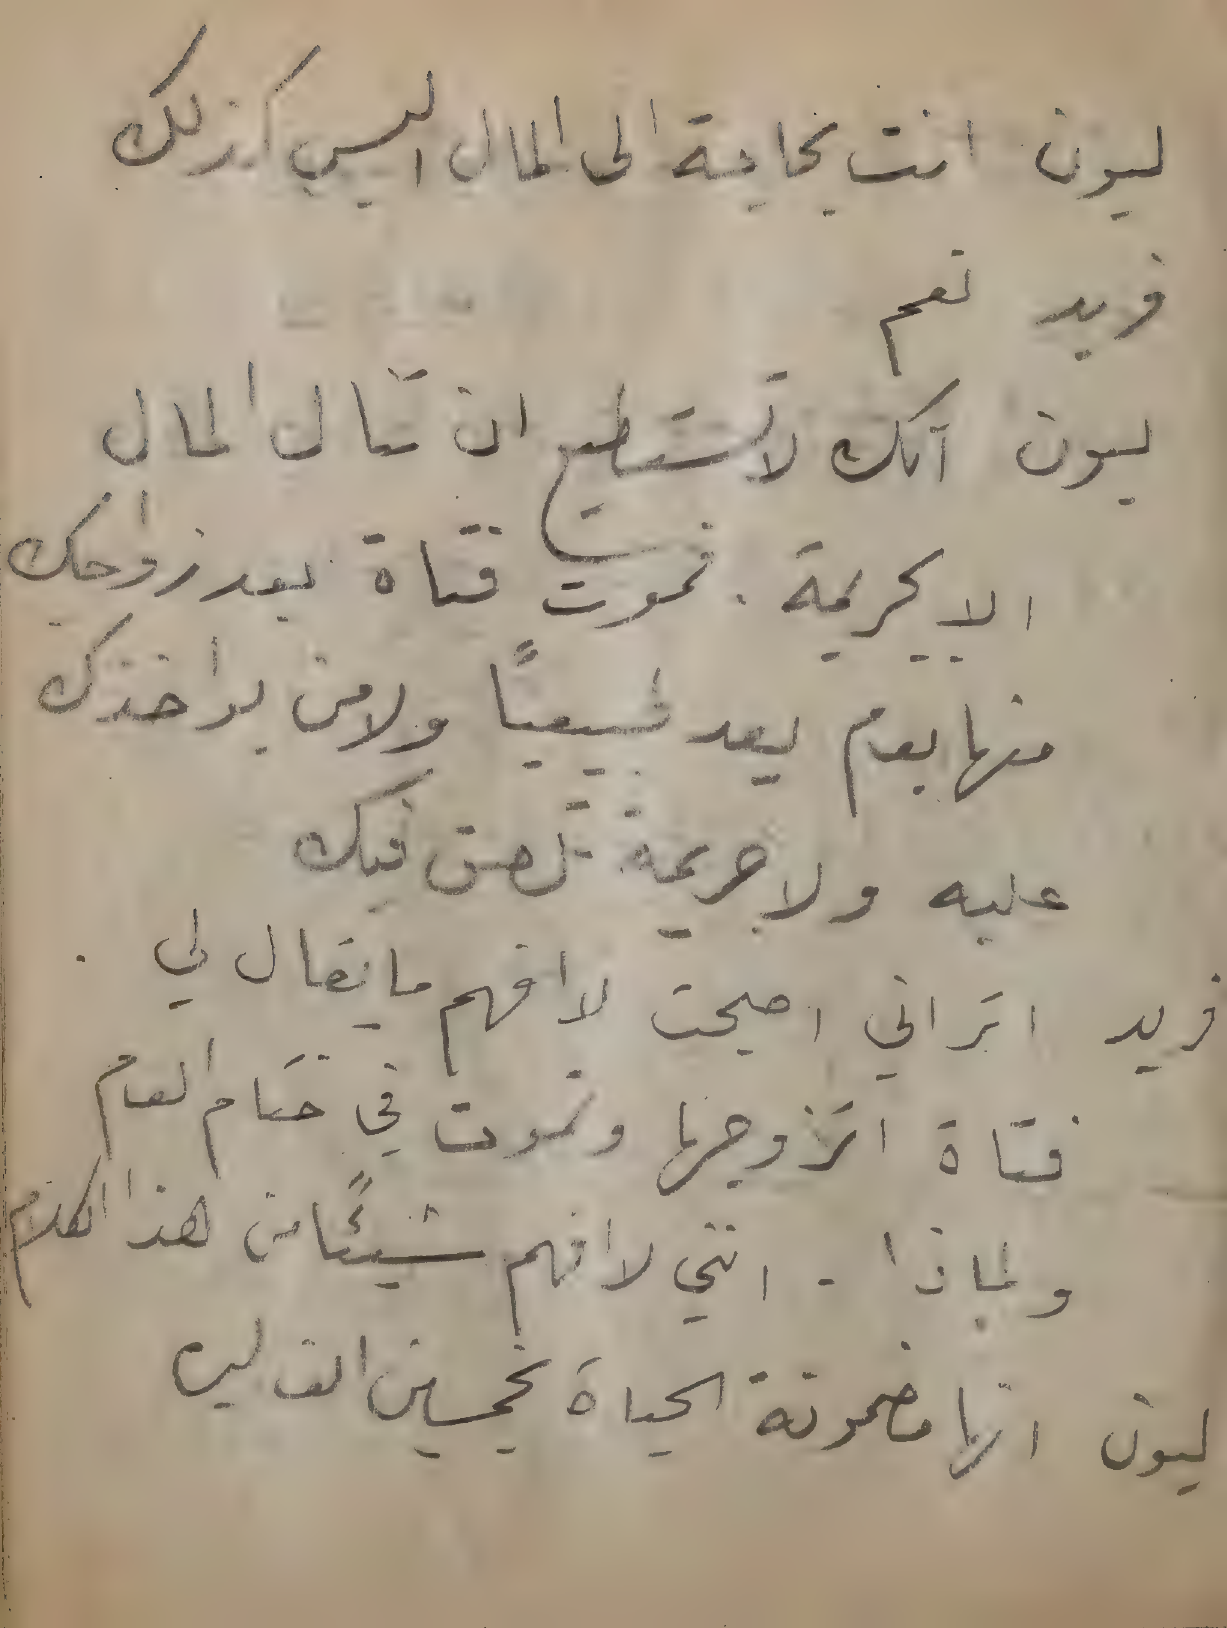 ليون انت بحاجة الى المال اليس كذلك
فريد نعم
ليون انك لا تستطيع ان تنال المال
الا بجريمة . فموت فتاة بعد زواجك
منها بعام يعد طبيعيًا ولا من يواخذك
عليه ولا جريمة تلصق فيك
فريد اتراني اصبحت لا افهم ما يقال لي .
فتاة اتزوجها وتموت في ختام العام
ولماذا - انني لا افهم شيئًا من هذا الكلام
ليون انها مضمونة الحياة بخمسين الف ليره